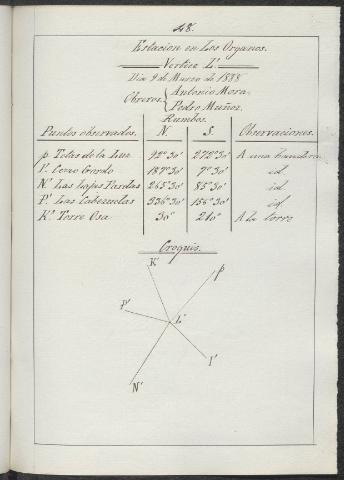 48.
Estacion en Los Organos.
Vertice L'
Dia 9 de Marzo de 1888
Obreros { Antonio Mora.
Pedro Muñoz.
Rumbos.
Puntos observados. N. S. Observaciones.
p. Tetas de la Luz 92°30' 272°30' A una bandera
I'. Cerro Gordo 187°30' 7°30' id
N'. Las Lajas Pardas 265°30' 85°30' id
P'. Las Cabezuelas 336°30' 156°30' id
K'. Torre Osa 30° 210° A la torre
Croquis.
K'
p
P'
L'
I'
N'